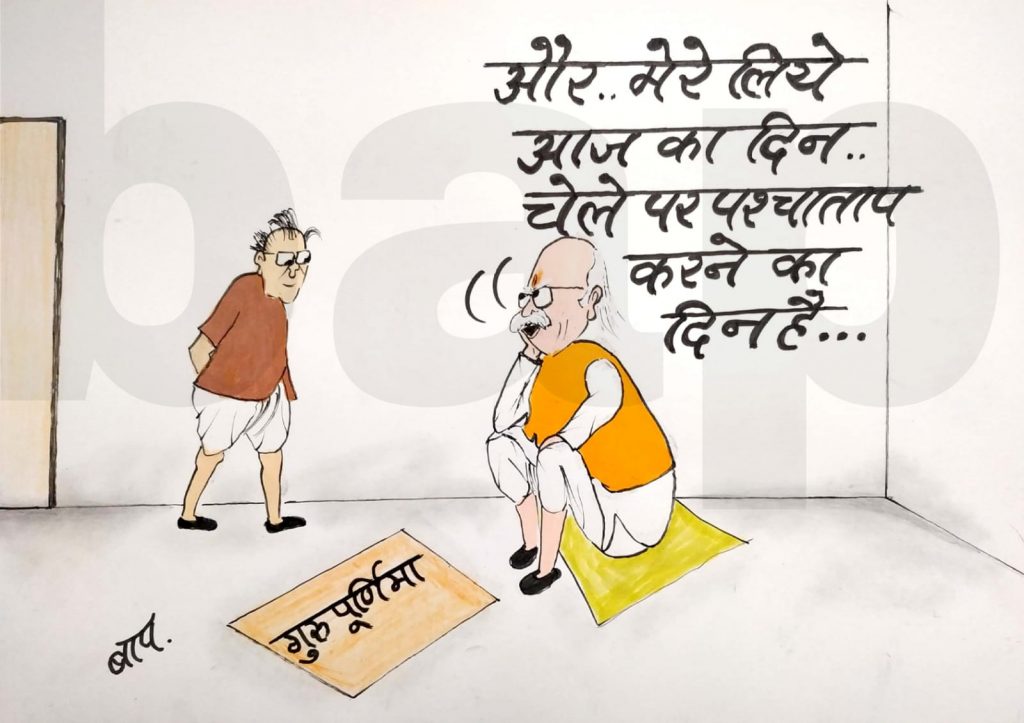 और.. मेरे लिये
आज का दिन..
चेले पर पश्चाताप
करने का
दिन है...
गुरु पूर्णिमा
बाप.
bap